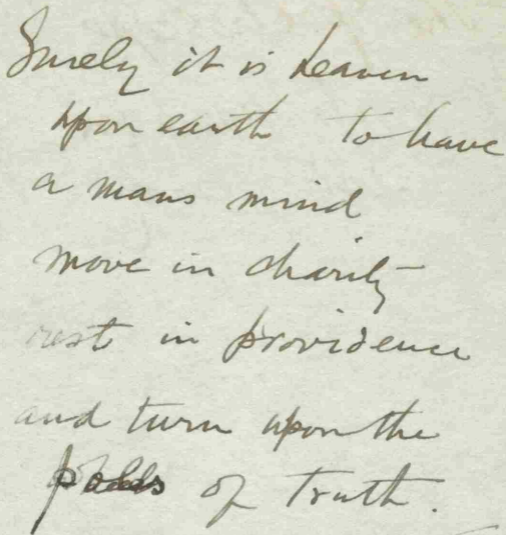 Surely it is heaven
upon earth to have
a mans mind
move in charity
rest in providence
and turn upon the
of truth.